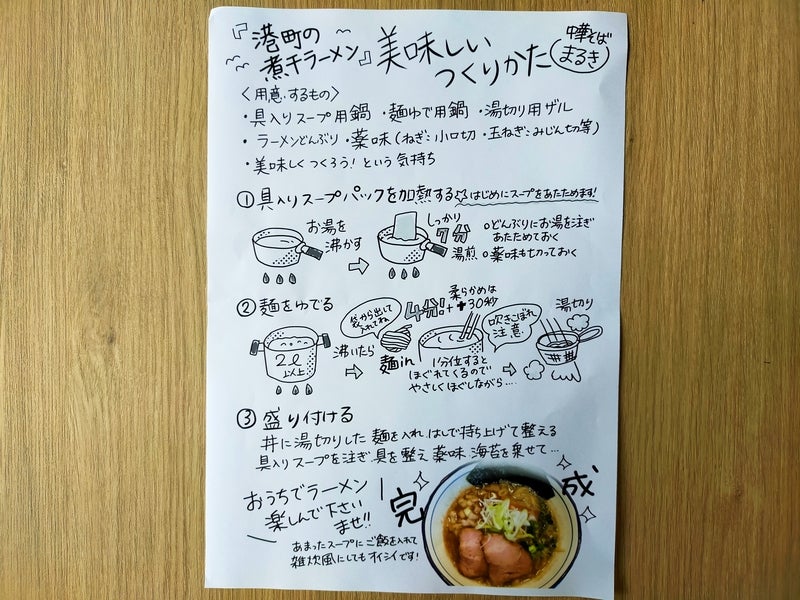 『港町の
煮干ラーメン』美味しい
つくりかた
中華そば
まるき
〈用意するもの〉
・具入りスープ用鍋 ・麺ゆで用鍋 ・湯切り用ザル
・ラーメンどんぶり ・薬味(ねぎ:小口切 ・玉ねぎ:みじん切等)
・美味しくつくろう!という気持ち
①具入りスープパックを加熱する☆はじめにスープをあたためます!
お湯を
沸かす
しっかり
7分
湯煎
○どんぶりにお湯を注ぎ
あたためておく
○薬味も切っておく
②麺をゆでる
2ℓ
以上
沸いたら
袋から出して
入れてね
麺in
4分!
柔らかめは
+30秒
1分位すると
ほぐれてくるので
やさしくほぐしながら…
吹きこぼれ
注意
湯切り
③盛り付ける
丼に湯切りした麺を入れ はしで持ち上げて整える
具入りスープを注ぎ 具を整え 薬味 海苔を乗せて…
完成
おうちでラーメン
楽しんで下さい
ませ!!
あまったスープにご飯を入れて
雑炊風にしてもオイシイです!